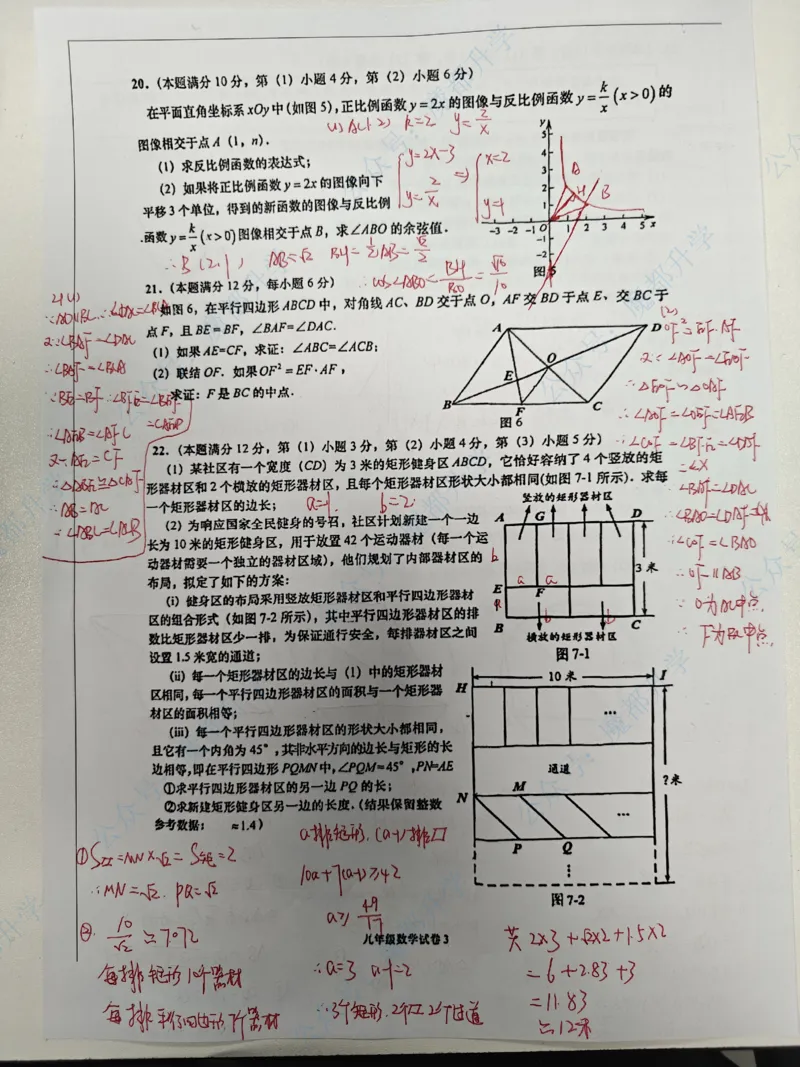 20.(本题满分10分，第(1)小题4分，第(2)小题6分)
在平面直角坐标系xOy中(如图5),正比例函数y=2x的图像与反比例函数y=k/x(x>0)的
(1) A(1,2) k=2 y=2/x
图像相交于点A(1，n).
(1)求反比例函数的表达式；
(2)如果将正比例函数y=2x的图像向下
平移3个单位，得到的新函数的图像与反比例
函数y=k/x(x>0)图像相交于点B，求∠ABO的余弦值.
{y=2x-3
y=2/x
⇒ {x=2
y=1
∴B(2,1) AB=√2 BH=1/2AB=√2/2
∴cos∠ABO=BH/BO=√10/10
y
5
4
3
2
1
-3 -2 -1 O 1 2 3 4 5 x
-1
-2
A
H
B
图5
21.(本题满分12分，每小题6分)
如图6，在平行四边形ABCD中，对角线AC、BD交于点O，AF交BD于点E、交BC于
点F，且BE=BF，∠BAF=∠DAC.
(1)如果AE=CF，求证：∠ABC=∠ACB；
(2)联结OF.如果OF²=EF·AF，
求证：F是BC的中点.
A
D
O
E
B
F
C
图6
21(1)
∠BAF=∠DAC
∴∠BAF=∠BCA
∵BE=BF ∴∠BFE=∠BEF
∴∠AEB=∠AFC
又∵AE=CF
∴AB=AC
∴∠ABC=∠ACB
(2)
OF²=EF·AF
∴△EOF∽△OAF
∠BAF=∠DAC
∴∠COF=∠BAO
∴OF∥AB
∵O为AC中点
∴F为BC中点.
22.(本题满分12分，第(1)小题3分，第(2)小题4分，第(3)小题5分)
(1)某社区有一个宽度(CD)为3米的矩形健身区ABCD，它恰好容纳了4个竖放的矩
形器材区和2个横放的矩形器材区，且每个矩形器材区形状大小都相同(如图7-1所示).求每
一个矩形器材区的边长；
a=1. b=2.
(2)为响应国家全民健身的号召，社区计划新建一个一边
长为10米的矩形健身区，用于放置42个运动器材(每一个运
动器材需要一个独立的器材区域)，他们规划了内部器材区的
布局，拟定了如下的方案：
(i)健身区的布局采用竖放矩形器材区和平行四边形器材
区的组合形式(如图7-2所示)，其中平行四边形器材区的排
数比矩形器材区少一排，为保证通行安全，每排器材区之间
设置1.5米宽的通道；
(ii)每一个矩形器材区的边长与(1)中的矩形器材
区相同，每一个平行四边形器材区的面积与一个矩形器
材区的面积相等；
(iii)每一个平行四边形器材区的形状大小都相同，
且它有一个内角为45°，其非水平方向的边长与矩形的长
边相等,即在平行四边形PQMN中,∠PQM=45°,PN=AE
①求平行四边形器材区的另一边PQ的长；
②求新建矩形健身区另一边的长度.(结果保留整数
参考数据： ≈1.4)
竖放的矩形器材区
A G D
b
a a
3米
E F
a
B b b C
横放的矩形器材区
图7-1
10米
H I
...
通道
?米
N M
...
P Q
图7-2
=MN×√2=S矩=2
∴MN=√2. PQ=√2
②. 10/√2≈7.072
每排矩形10个器材
每排平行四边形7个器材
a排矩形，(a-1)排▱
10a+7(a-1)≥42
a≥49/17
∴a=3 a-1=2
∴3个矩形.2个▱ 2个过道
共 2×3+√2×2+1.5×2
=6+2.83+3
=11.83
≈12米
九年级数学试卷3